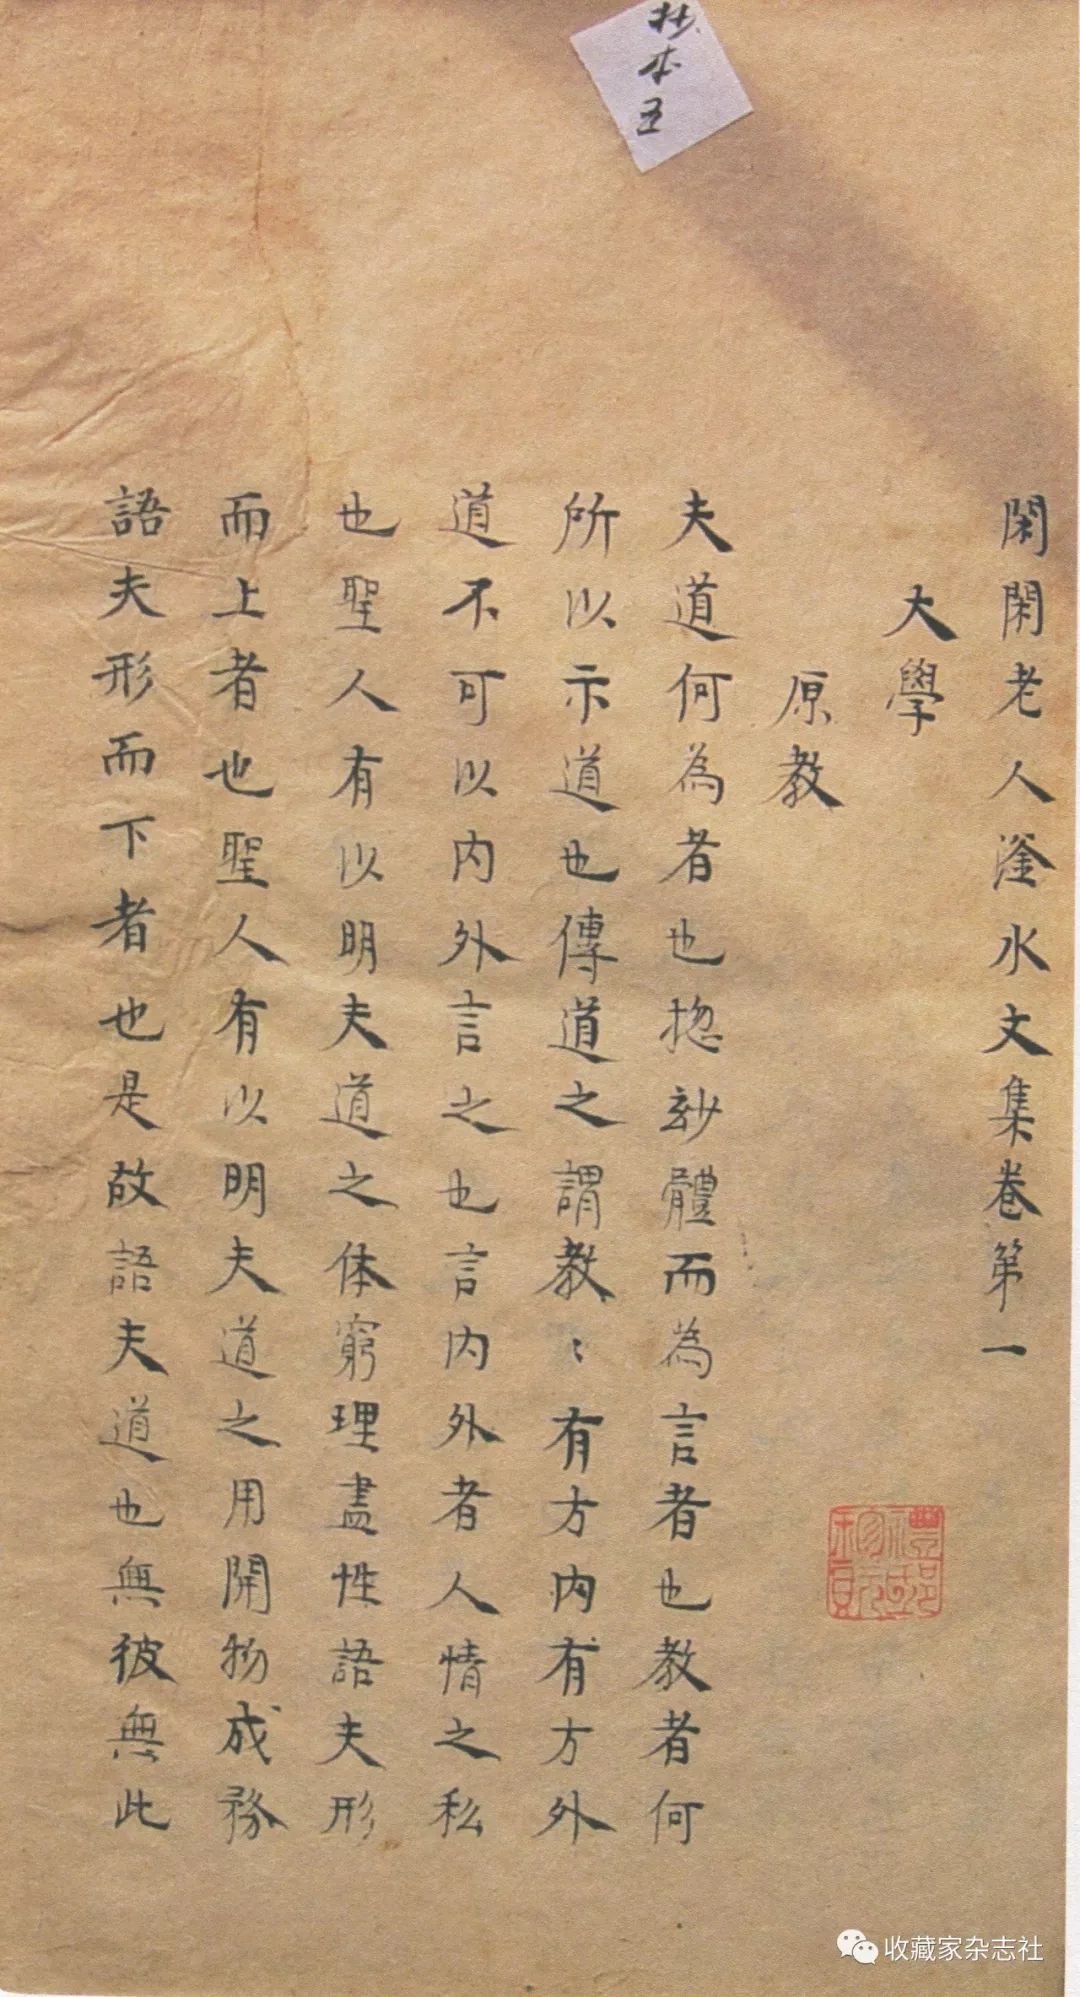 抄本五
閑閑老人滏水文集卷第一
大學
原教
夫道何為者也揔玅體而為言者也教者何
所以示道也傳道之謂教〻有方内有方外
道不可以内外言之也言内外者人情之私
也聖人有以明夫道之体窮理盡性語夫形
而上者也聖人有以明夫道之用開物成務
語夫形而下者也是故語夫道也無彼無此
收藏家杂志社